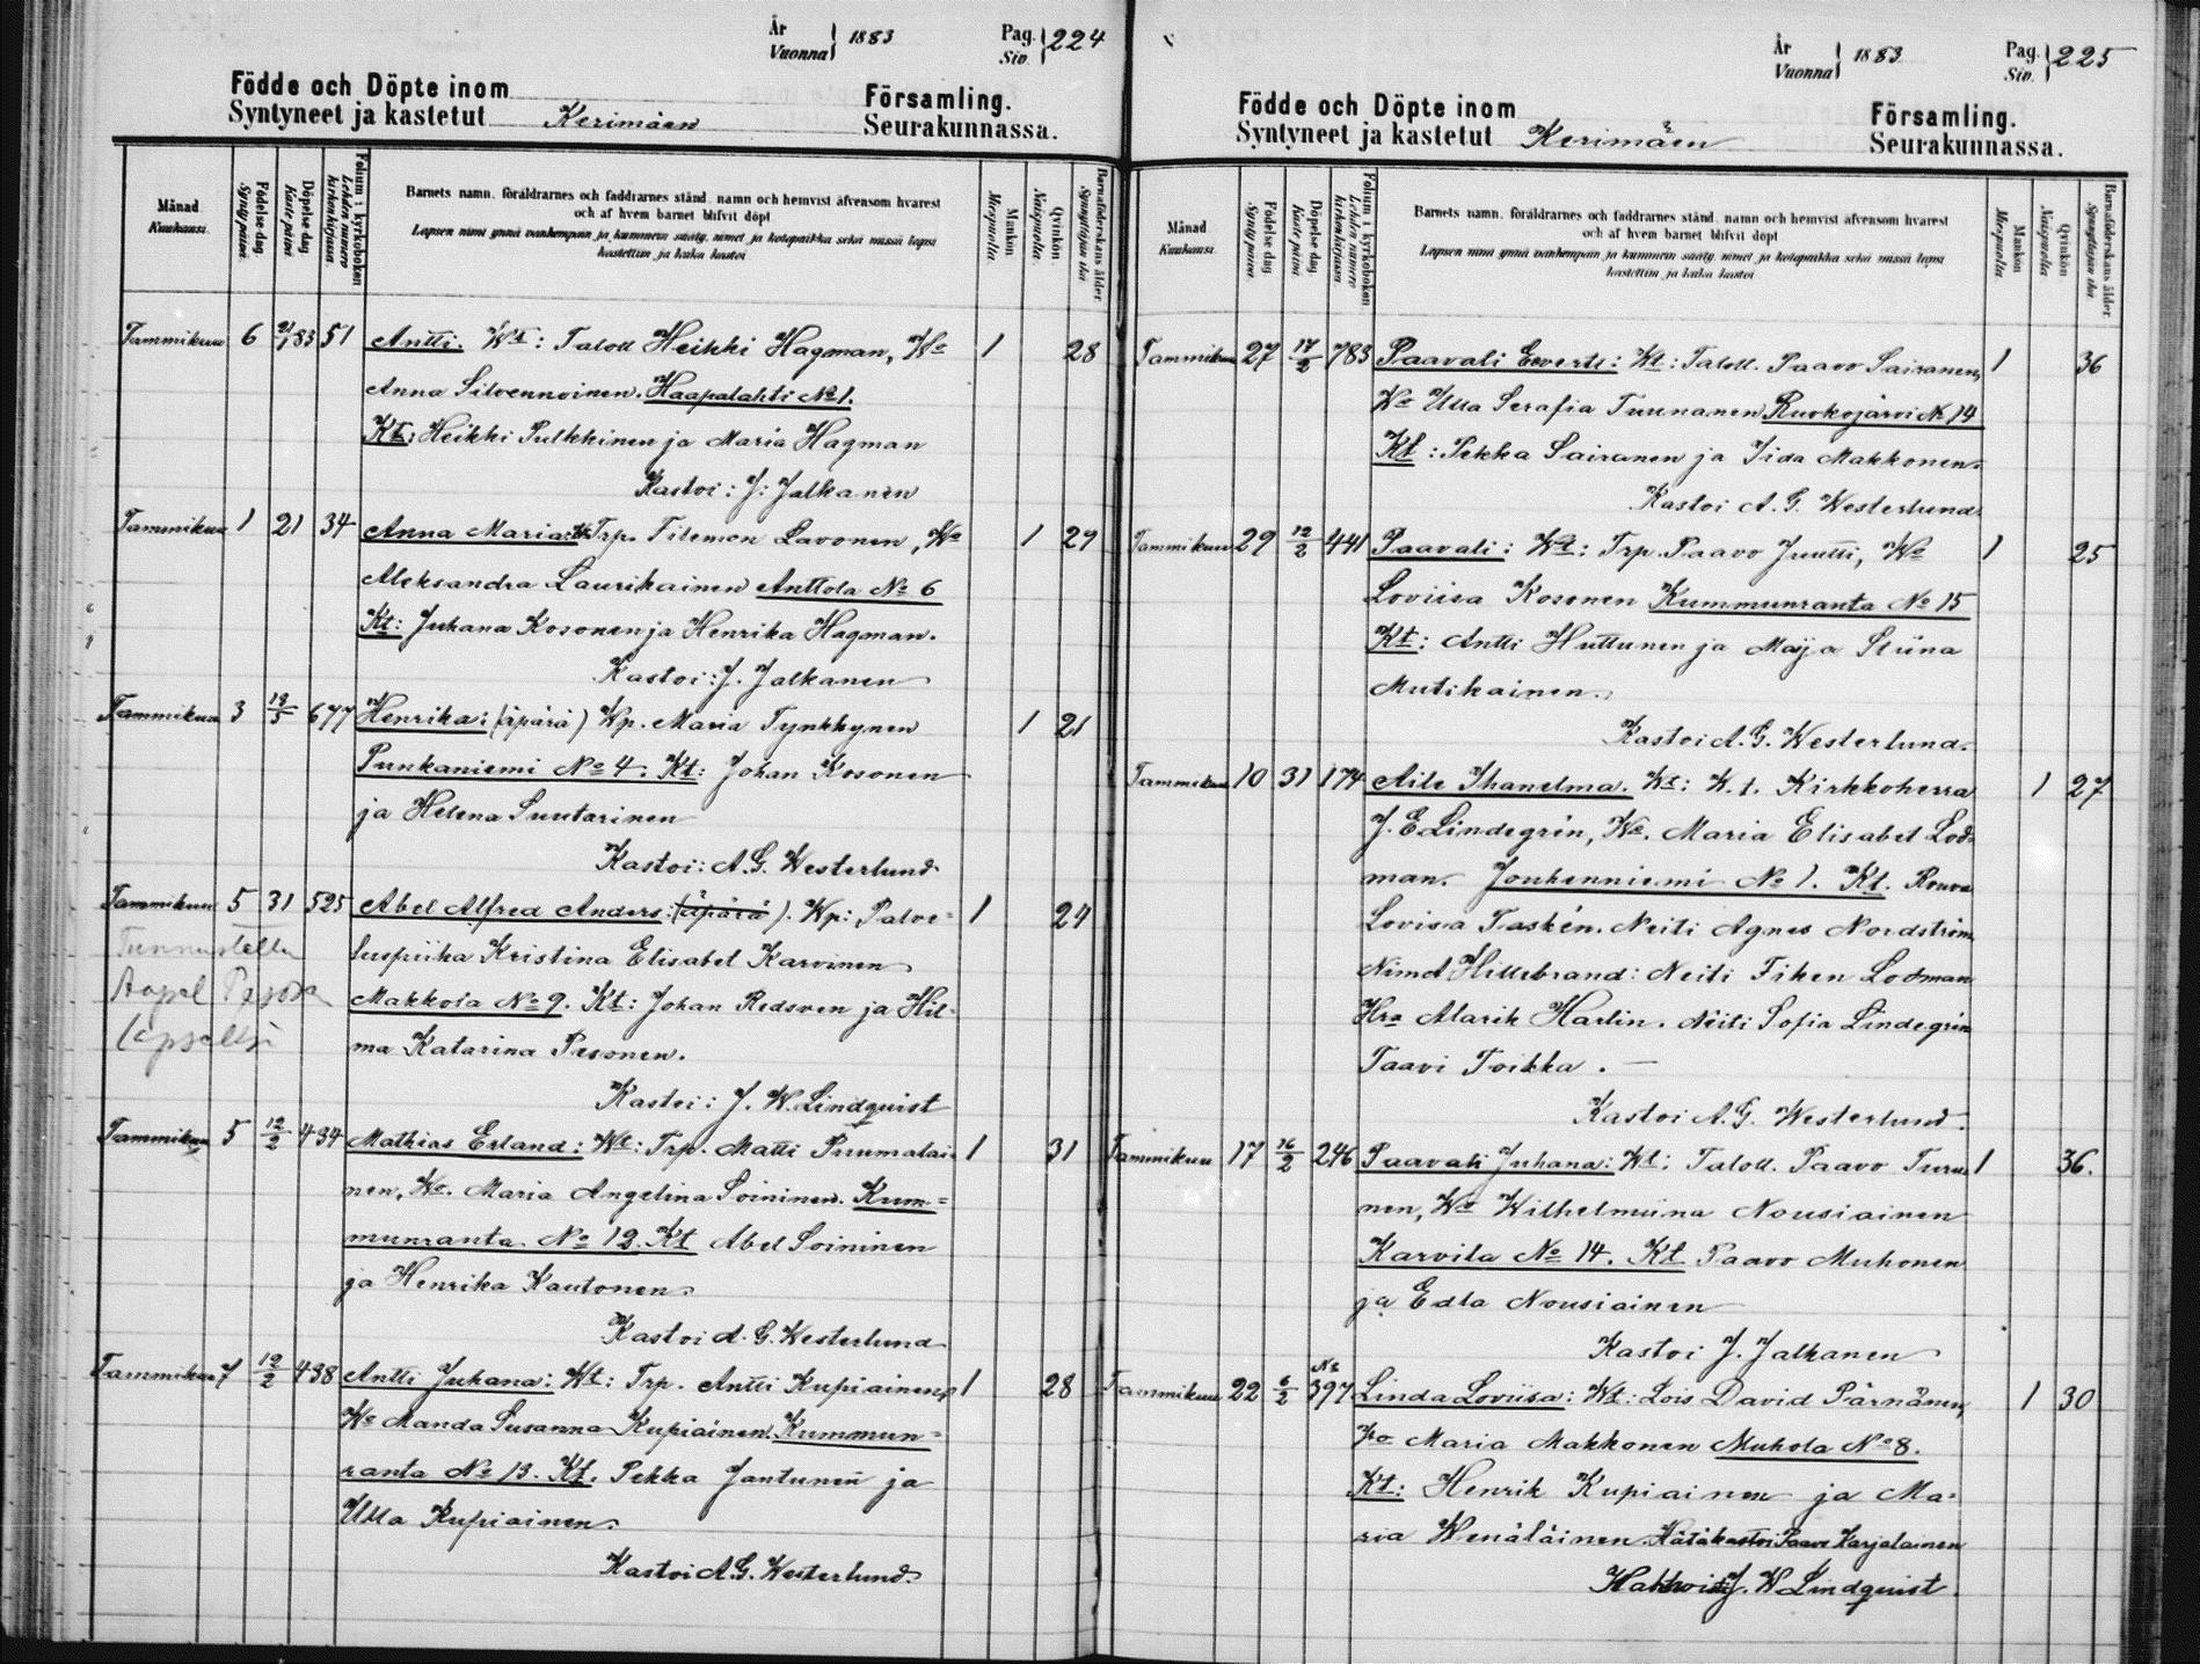 År
Vuonna 1883
Pag.
Siv. 224
Födde och Döpte inom
Syntyneet ja kastetut Kerimäen
Församling.
Seurakunnassa.
Månad
Kuukausi
Födelse dag
Synty päivä
Döpelse dag
Kaste päivä
Folium i kyrkoboken
Lehden numero kirkonkirjassa
Barnets namn, föräldrarnes och faddrarnes stånd, namn och hemvist äfvensom hvarest
och af hvem barnet blifvit döpt
Lapsen nimi ynnä vanhempain ja kummein sääty, nimet ja kotopaikka sekä missä lapsi
kastettiin ja kuka kastoi
Mankön
Miespuolia
Qvinkön
Naispuolia
Barnaföderskans ålder
Synnyttäjän ikä
Tammikuu 6 21/1 83 51 Antti. Wt: Taloll Heikki Hagman, Wo 1 28
Anna Silvennoinen. Haapalahti No 1.
Kt: Heikki Pulkkinen ja Maria Hagman
Kastoi: J: Jalkanen
Tammikuu 1 21 34 Anna Maria: Wt Trp. Filemon Lavonen, Wo 1 29
Aleksandra Laurikainen Anttola No 6
Kt: Juhana Kosonen ja Henrika Hagman.
Kastoi: J. Jalkanen
Tammikuu 3 677 Henrika: (äpärä) Wp. Maria Tynkkynen 1 21
Punkaniemi No 4. Kt: Johan Kosonen
ja Helena Suutarinen
Kastoi: A.G. Westerlund
Tammikuu 5 31 525 Abel Alfred Anders: (äpärä). Wp: Palve= 1 24
Tunnustettu
luspiika Kristina Elisabet Karvinen
Aapel Pesosen
Makkola No 9. Kt: Johan Redsven ja Hil=
lapseksi
ma Katarina Pesonen.
Kastoi: J. W. Lindquist
Tammikuu 5 12/2 434 Mathias Erland: Wt: Trp. Matti Puumalai= 1 31
nen, Wo. Maria Angelina Soininen. Kum=
munranta No 12. Kt Abel Soininen
ja Henrika Kautonen.
Kastoi A. G. Westerlund
Tammikuu 7 12/2 438 Antti Juhana: Wt: Trp. Antti Kupiainen, 1 28
Wo Manda Susanna Kupiainen. Kummun=
ranta No 13. Kt. Pekka Jantunen ja
Ulla Kupiainen.
Kastoi A.G. Westerlund.
År
Vuonna 1883
Pag.
Siv. 225
Födde och Döpte inom
Syntyneet ja kastetut Kerimäen
Församling.
Seurakunnassa.
Månad
Kuukausi
Födelse dag
Synty päivä
Döpelse dag
Kaste päivä
Folium i kyrkoboken
Lehden numero kirkonkirjassa
Barnets namn, föräldrarnes och faddrarnes stånd, namn och hemvist äfvensom hvarest
och af hvem barnet blifvit döpt
Lapsen nimi ynnä vanhempain ja kummein sääty, nimet ja kotopaikka sekä missä lapsi
kastettiin ja kuka kastoi
Mankön
Miespuolia
Qvinkön
Naispuolia
Barnaföderskans ålder
Synnyttäjän ikä
Tammikuu 27 17/2 783 Paavali Evertti: Wt: Taloll. Paavo Sairanen, 1 36
Wo Ulla Serafia Tuunanen Ruokojärvi No 14
Kt: Pekka Sairanen ja Iida Makkonen.
Kastoi A. G. Westerlund.
Tammikuu 29 12/2 441 Paavali: Wt: Trp. Paavo Juutti, Wo 1 25
Loviisa Kosonen Kummunranta No 15
Kt: Antti Huttunen ja Maija Stiina
Mutikainen.
Kastoi A. G. Westerlund.
Tammikuu 10 31 174 Aile Ihanelma. Wt: W. t. Kirkkoherra 1 27
J. E Lindegrén, Wo. Maria Elisabet Lod=
man. Jouhenniemi No 1. Kt. Rouva
Lovisa Taskén. Neiti Agnes Nordström
Nimd Hillebrand: Neiti Fiken Lodman
Hra Alarik Harlin. Neiti Sofia Lindegrén
Taavi Toikka. —
Kastoi A. G. Westerlund.
Tammikuu 17 16/2 246 Paavali Juhana: Wt: Taloll. Paavo Turu= 1 36.
nen, Wo Wilhelmiina Nousiainen
Karvila No 14. Kt Paavo Muhonen
ja Edla Nousiainen
Kastoi J. Jalkanen
Tammikuu 22 6/2 397 Linda Loviisa: Wt: Lois David Pärnänen, 1 30
Wo Maria Makkonen Muhola No 8.
Kt: Henrik Kupiainen ja Ma=
ria Wenäläinen. Hätäkastoi Paavo Karjalainen
J. W Lindquist.